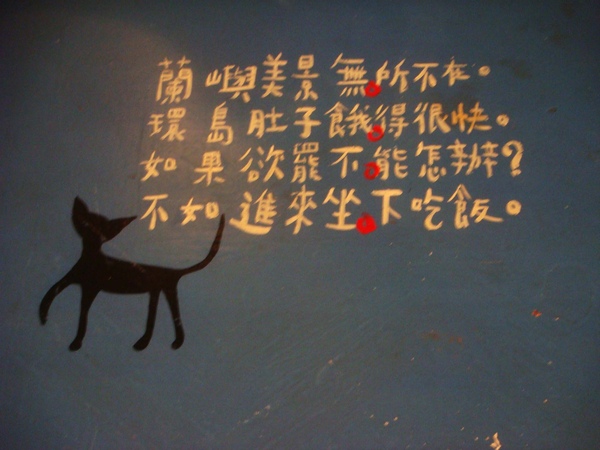 蘭嶼美景無所不在。
環島肚子餓得很快。
如果欲罷不能怎辦?
不如進來坐下吃飯。